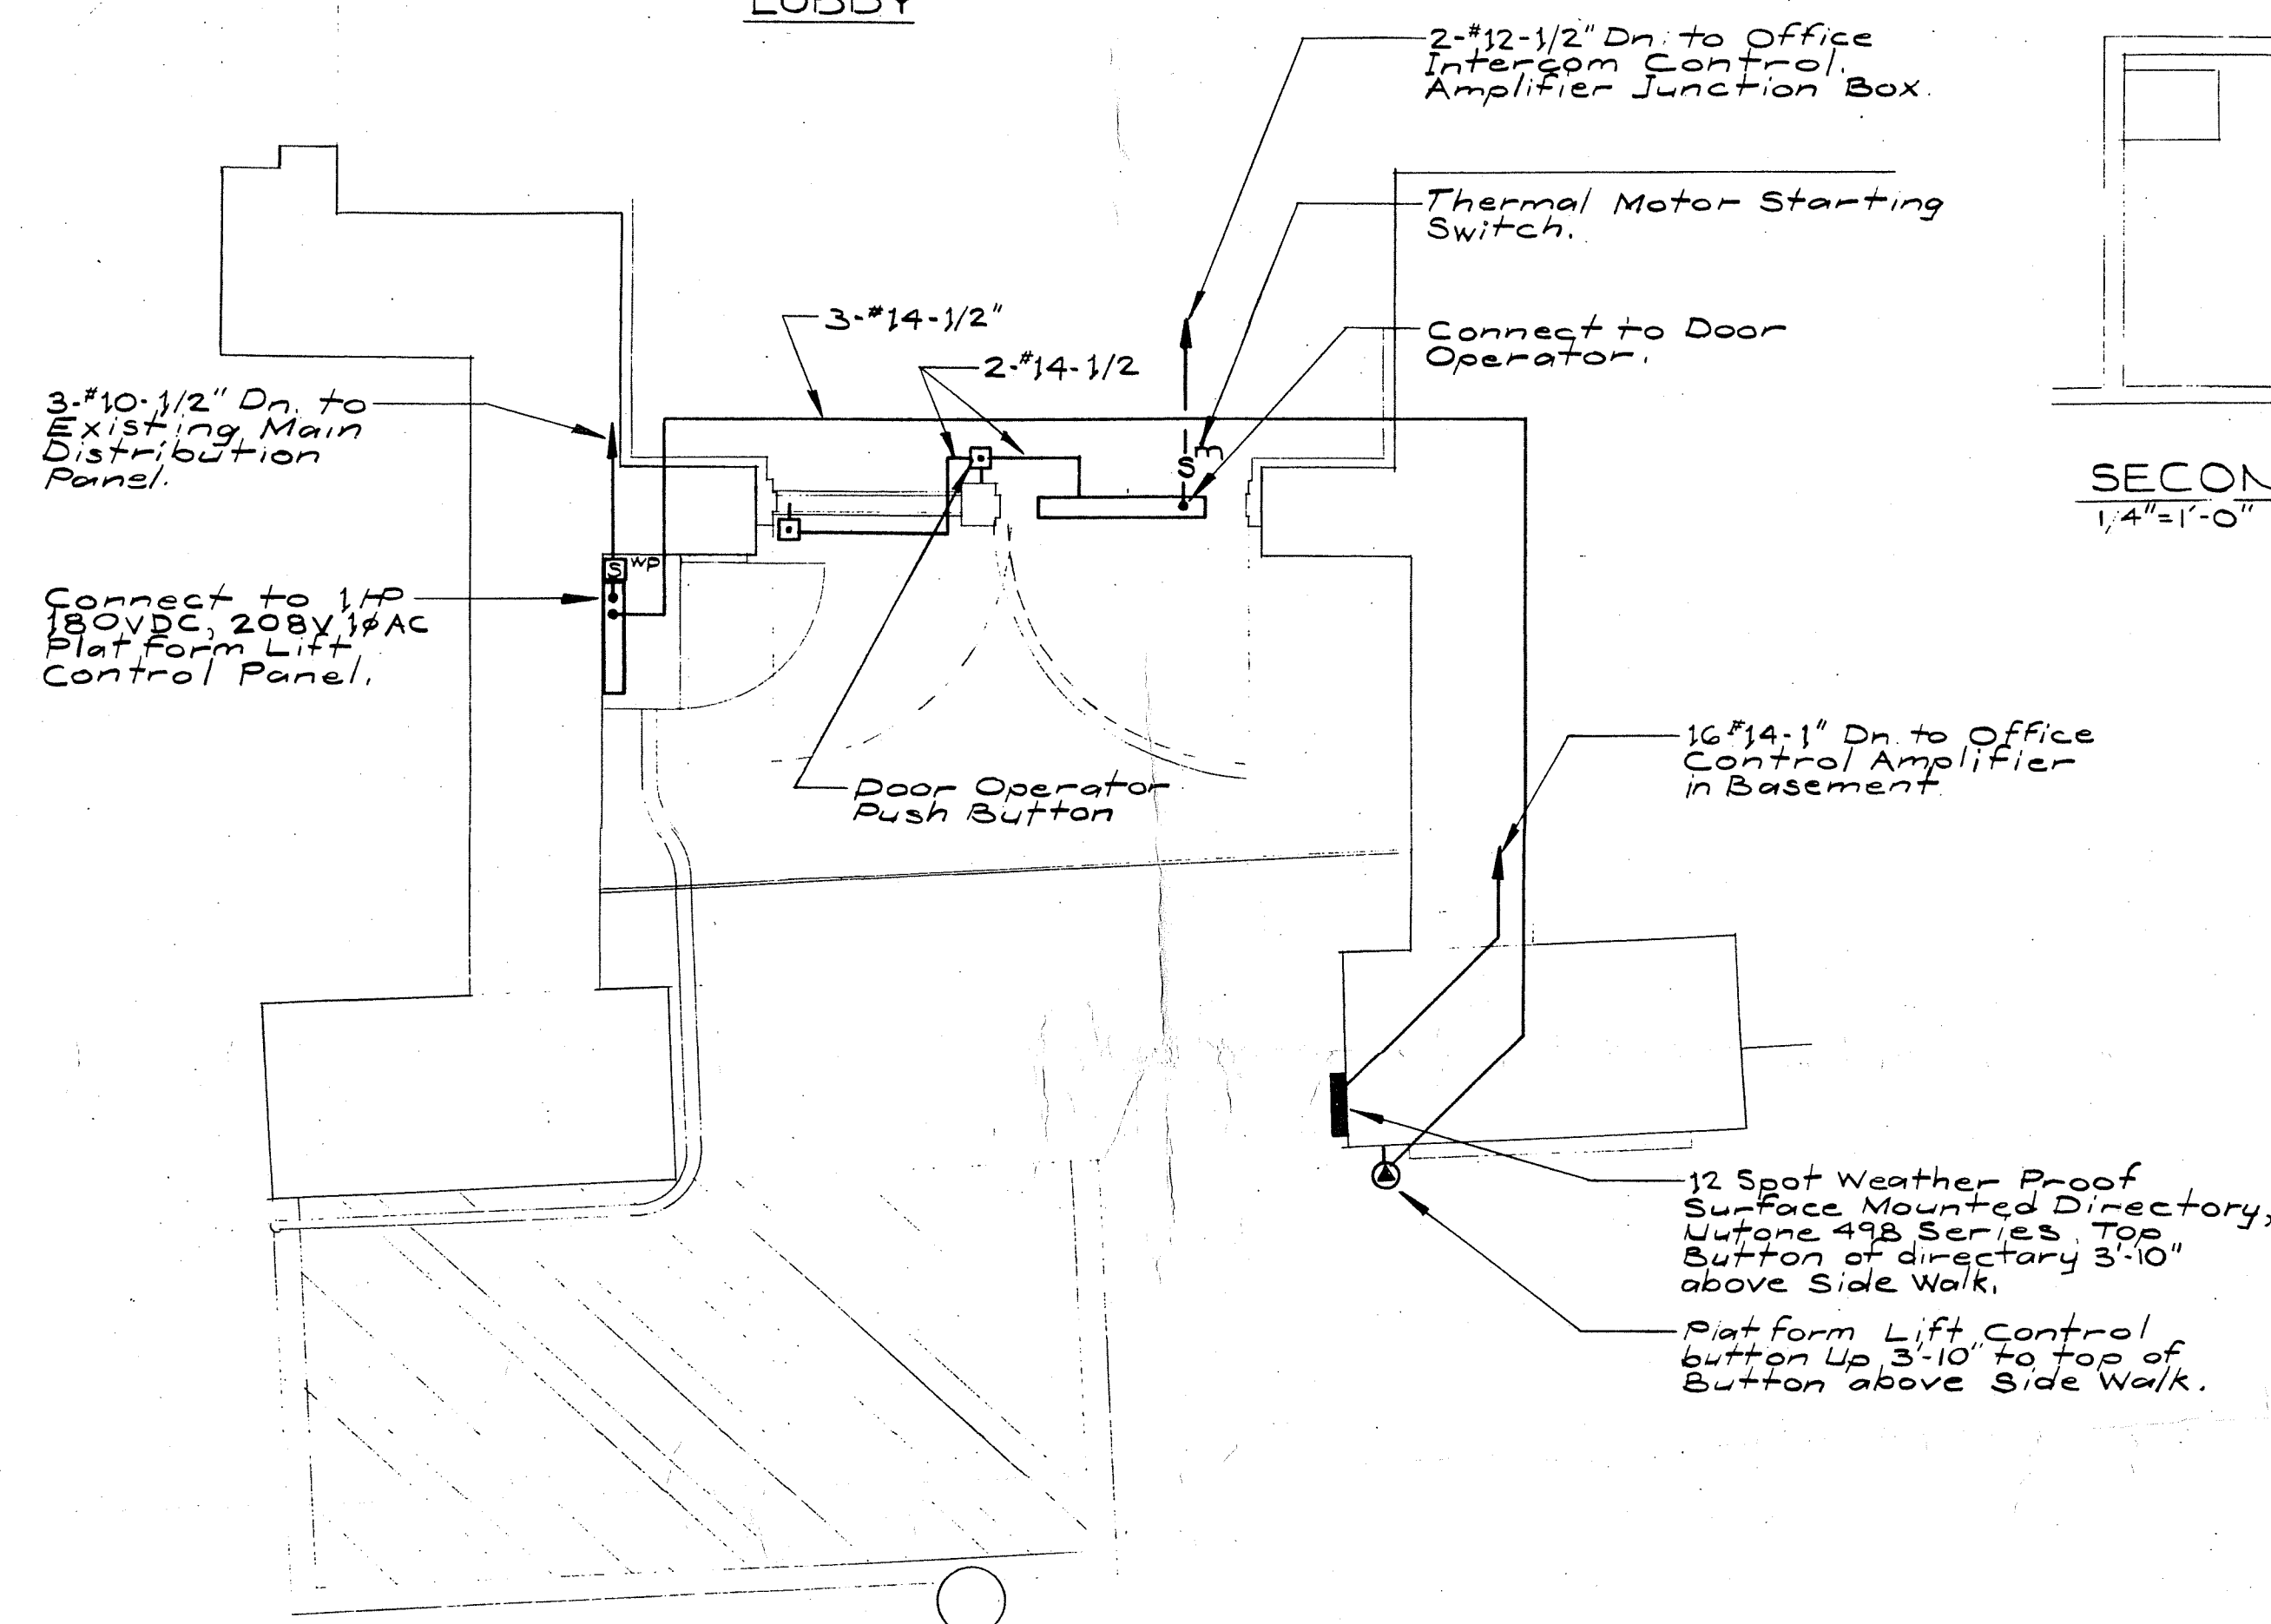 LOBBY
2-#12-1/2" Dn. to Office
Intercom Control.
Amplifier Junction Box.
Thermal Motor Starting
Switch.
3-#14-1/2"
2-#14-1/2
Connect to Door
Operator.
3-#10-1/2" Dn. to
Existing Main
Distribution
Panel.
S
M
SECON
1/4"=1'-0"
S
WP
Connect to 1 HP
180VDC, 208V 1ø AC
Platform Lift
Control Panel.
16#14-1" Dn. to Office
Control Amplifier
in Basement
Door Operator
Push Button
12 Spot Weather Proof
Surface Mounted Directory,
Nutone 498 Series. Top
Button of directary 3'-10"
above Side Walk.
Platform Lift Control
button Up 3'-10" to top of
Button above Side Walk.